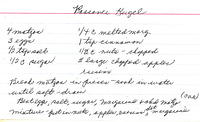 Passover Kugel
4 matzos 1/4 c melted marg.
3 eggs 1 tsp cinnamon
1/2 tsp salt 1/2 c nuts - chopped
1/2 c sugar 2 large chopped apples
raisins
Break matzos in pieces - soak in water
until soft - drain
Beat eggs, salt, sugar, margarine & add matzo
mixture